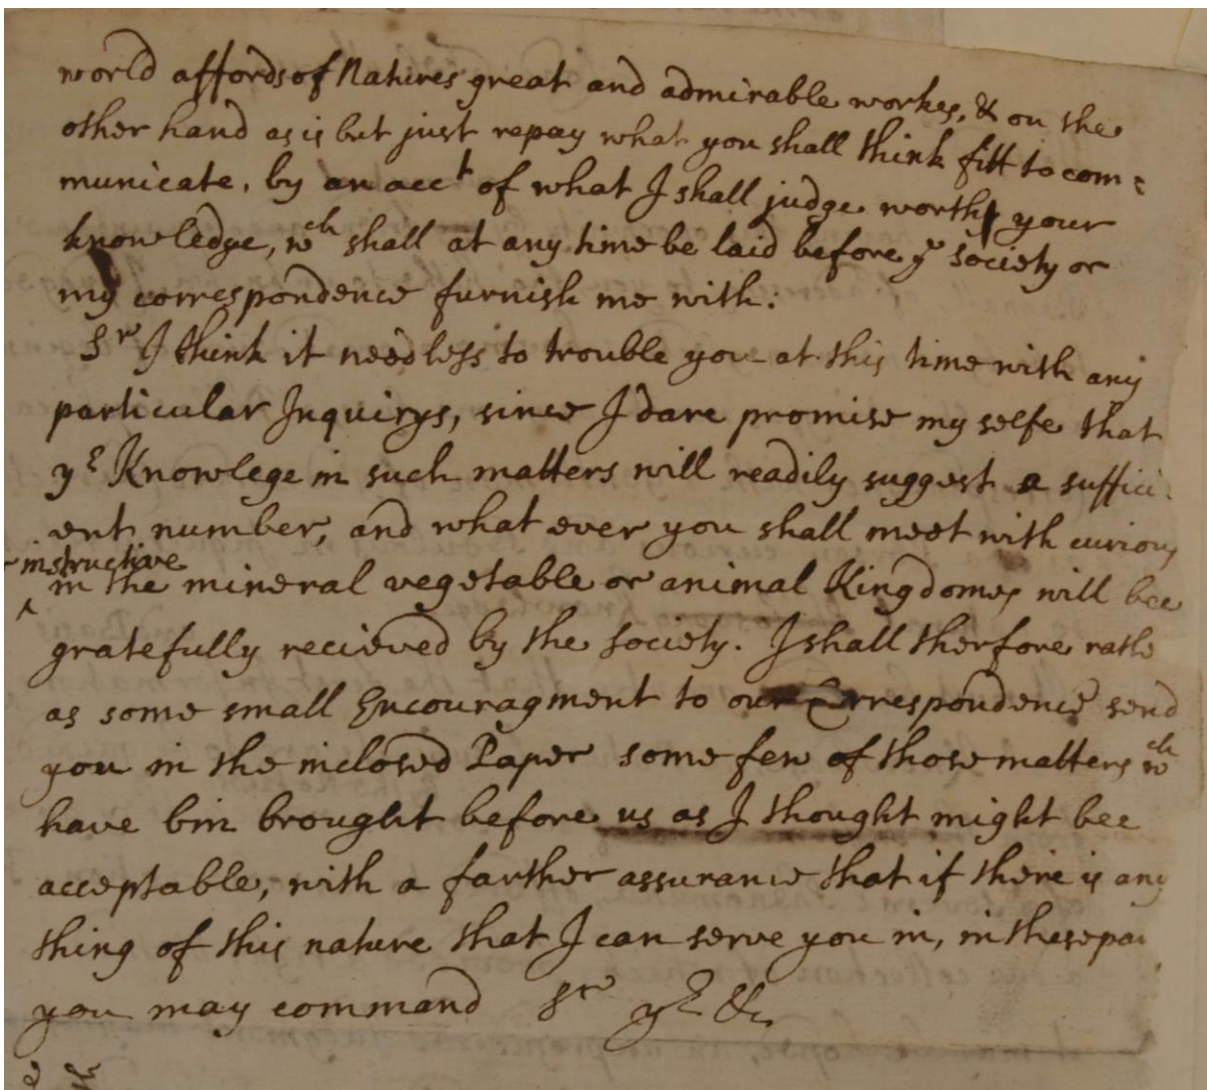 world affords of Natures great and admirable workes, & on the
other hand as is but just repay what you shall think fitt to com=
municate, by an acct of what I shall judge worthy your
knowledge, wch shall at any time be laid before ye society or
my correspondence furnish me with:
Sr I think it needless to trouble you at this time with any
particular Inquirys, since I dare promise my selfe that
yr Knowlege in such matters will readily suggest a suffici
ent number, and what ever you shall meet with curious
instructive
in the mineral vegetable or animal Kingdomes will bee
gratefully recieved by the society. I shall therfore rathe
as some small Encouragment to our Correspondence send
you in the inclosed Paper some few of those matters wch
have bin brought before us as I thought might bee
acceptable, with a farther assurance that if there is any
thing of this nature that I can serve you in, in these pa
you may command Sr yr &c